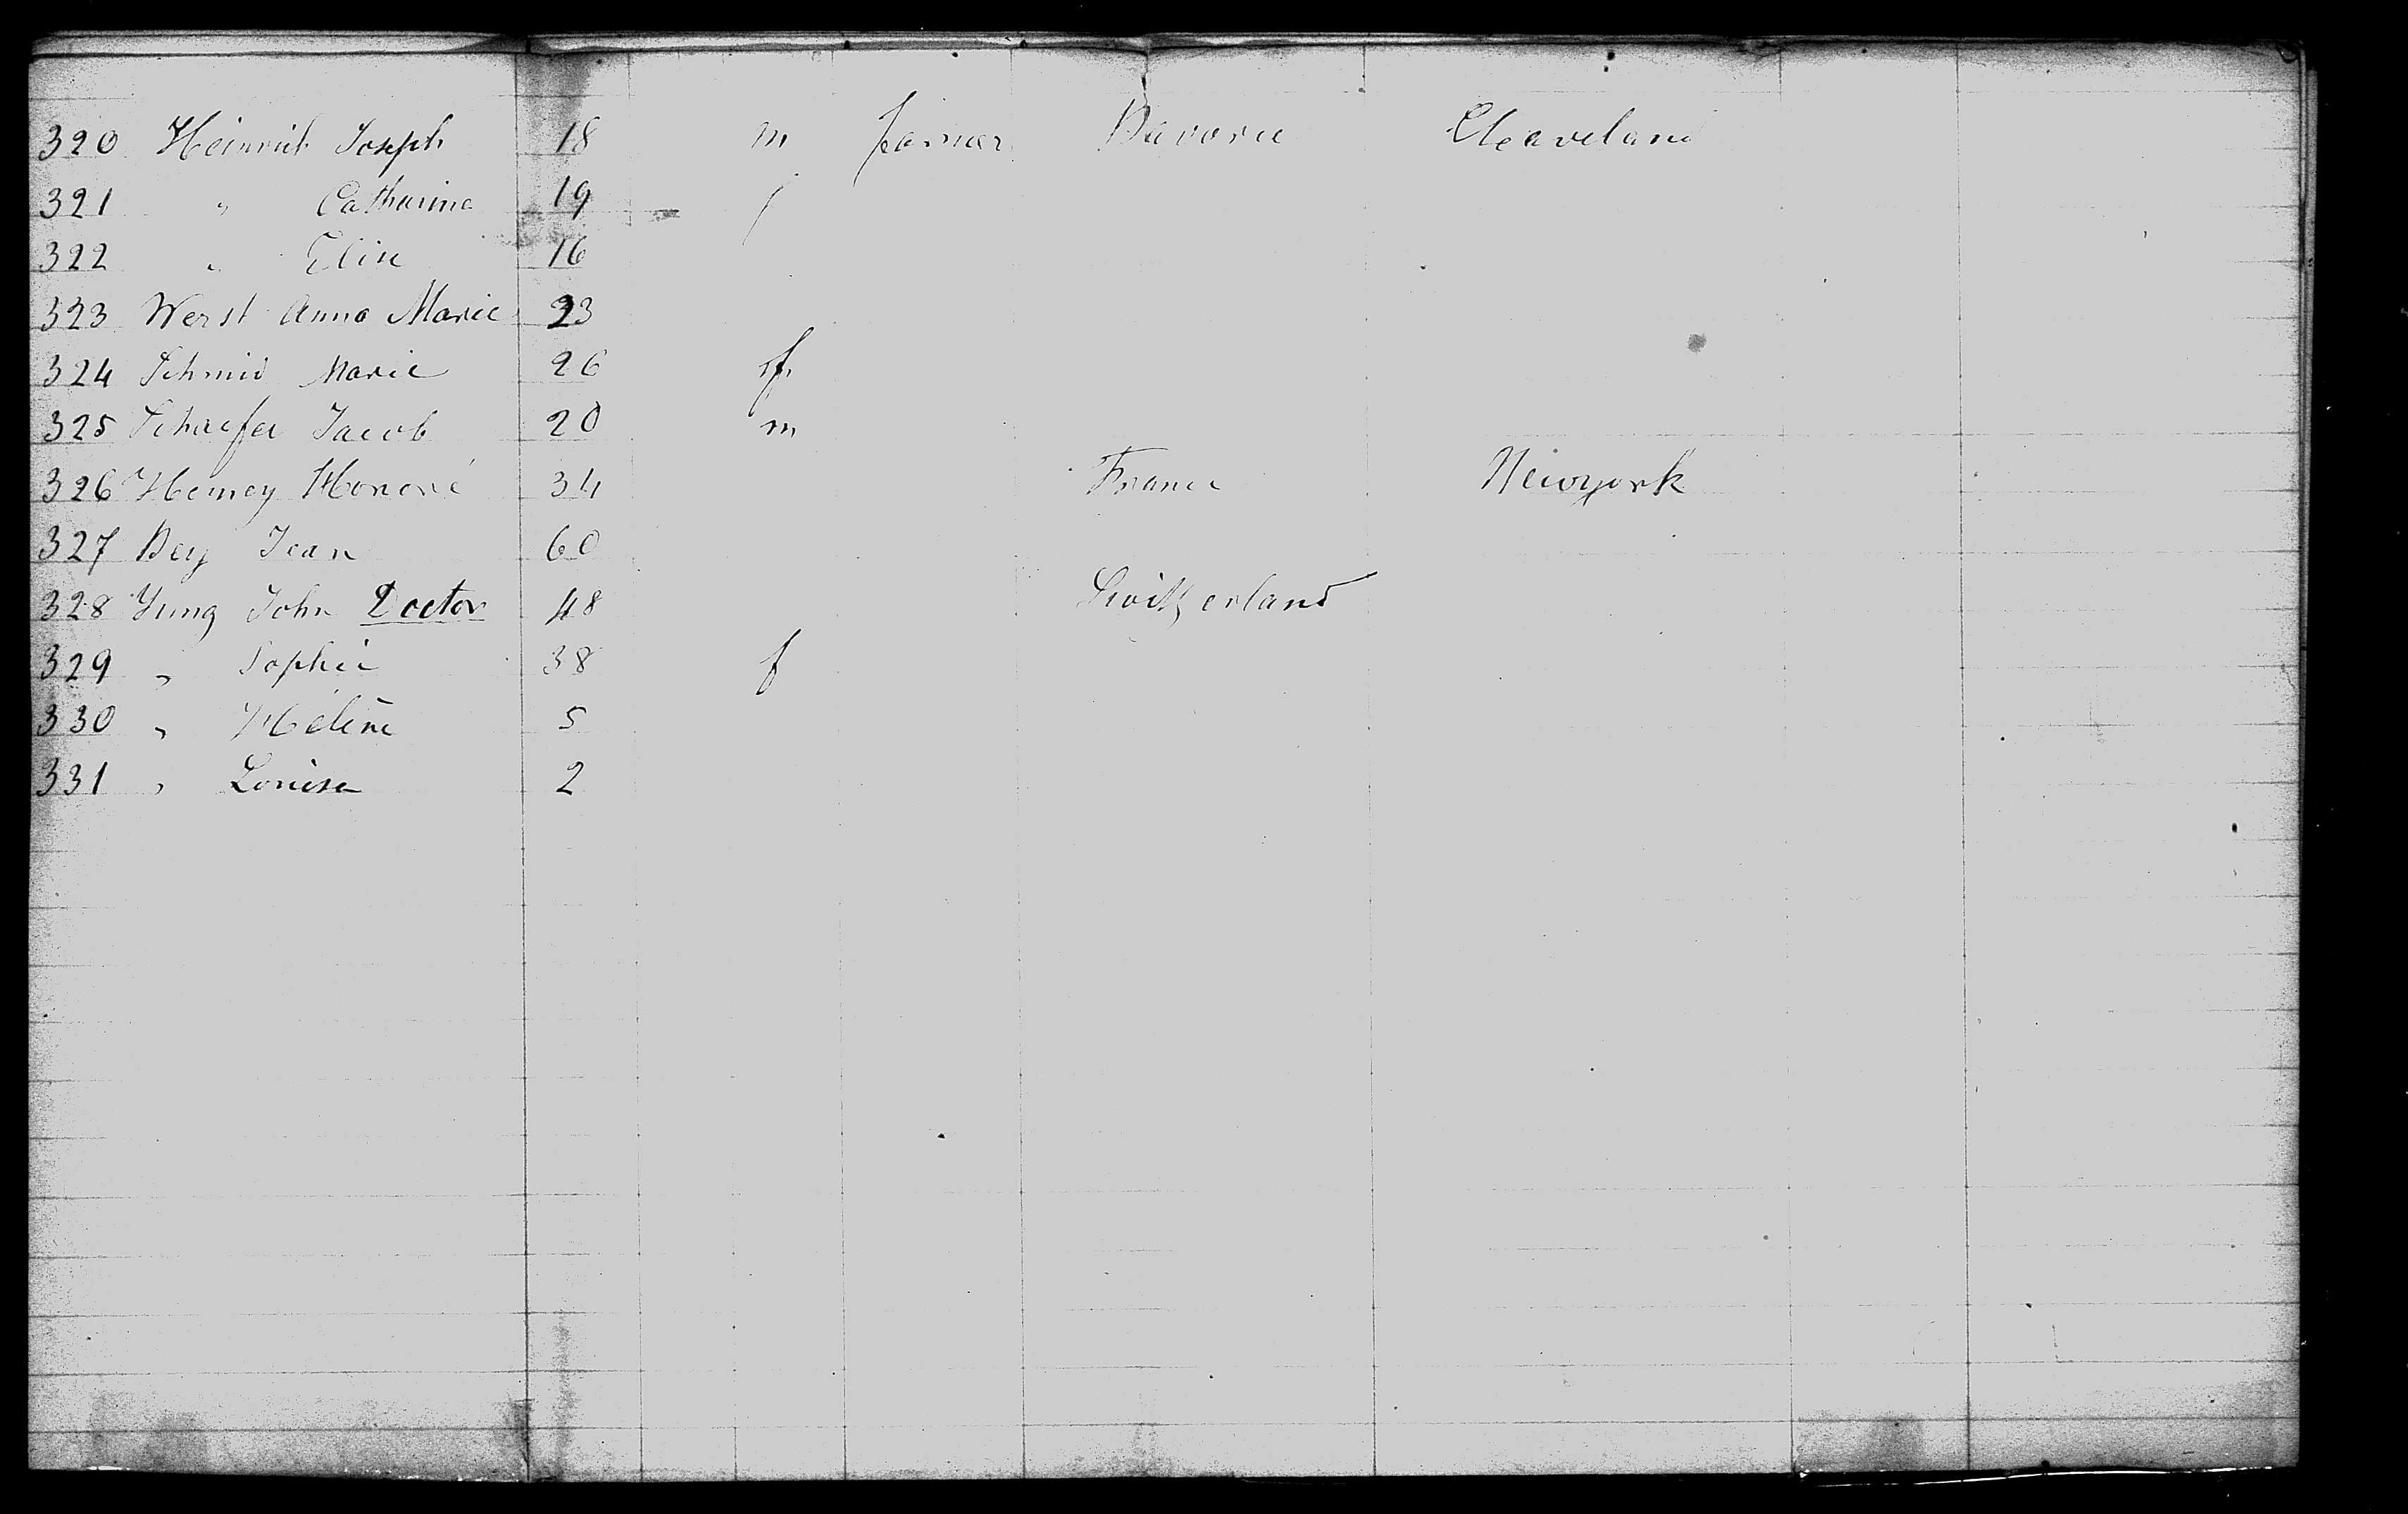 320 Heinrich Joseph 18 m farmer Bavaria Cleaveland
321 " Catharina 19 f
322 " Elise 16
323 Werst Anna Marie 23
324 Schmid Marie 26 f
325 Schaefer Jacob 20 m
326 Hemey Honoré 34 France Newyork
327 Bey Jean 60
328 Yung John Doctor 48 Switzerland
329 " Sophie 38 f
330 " Hélène 5
331 " Louise 2